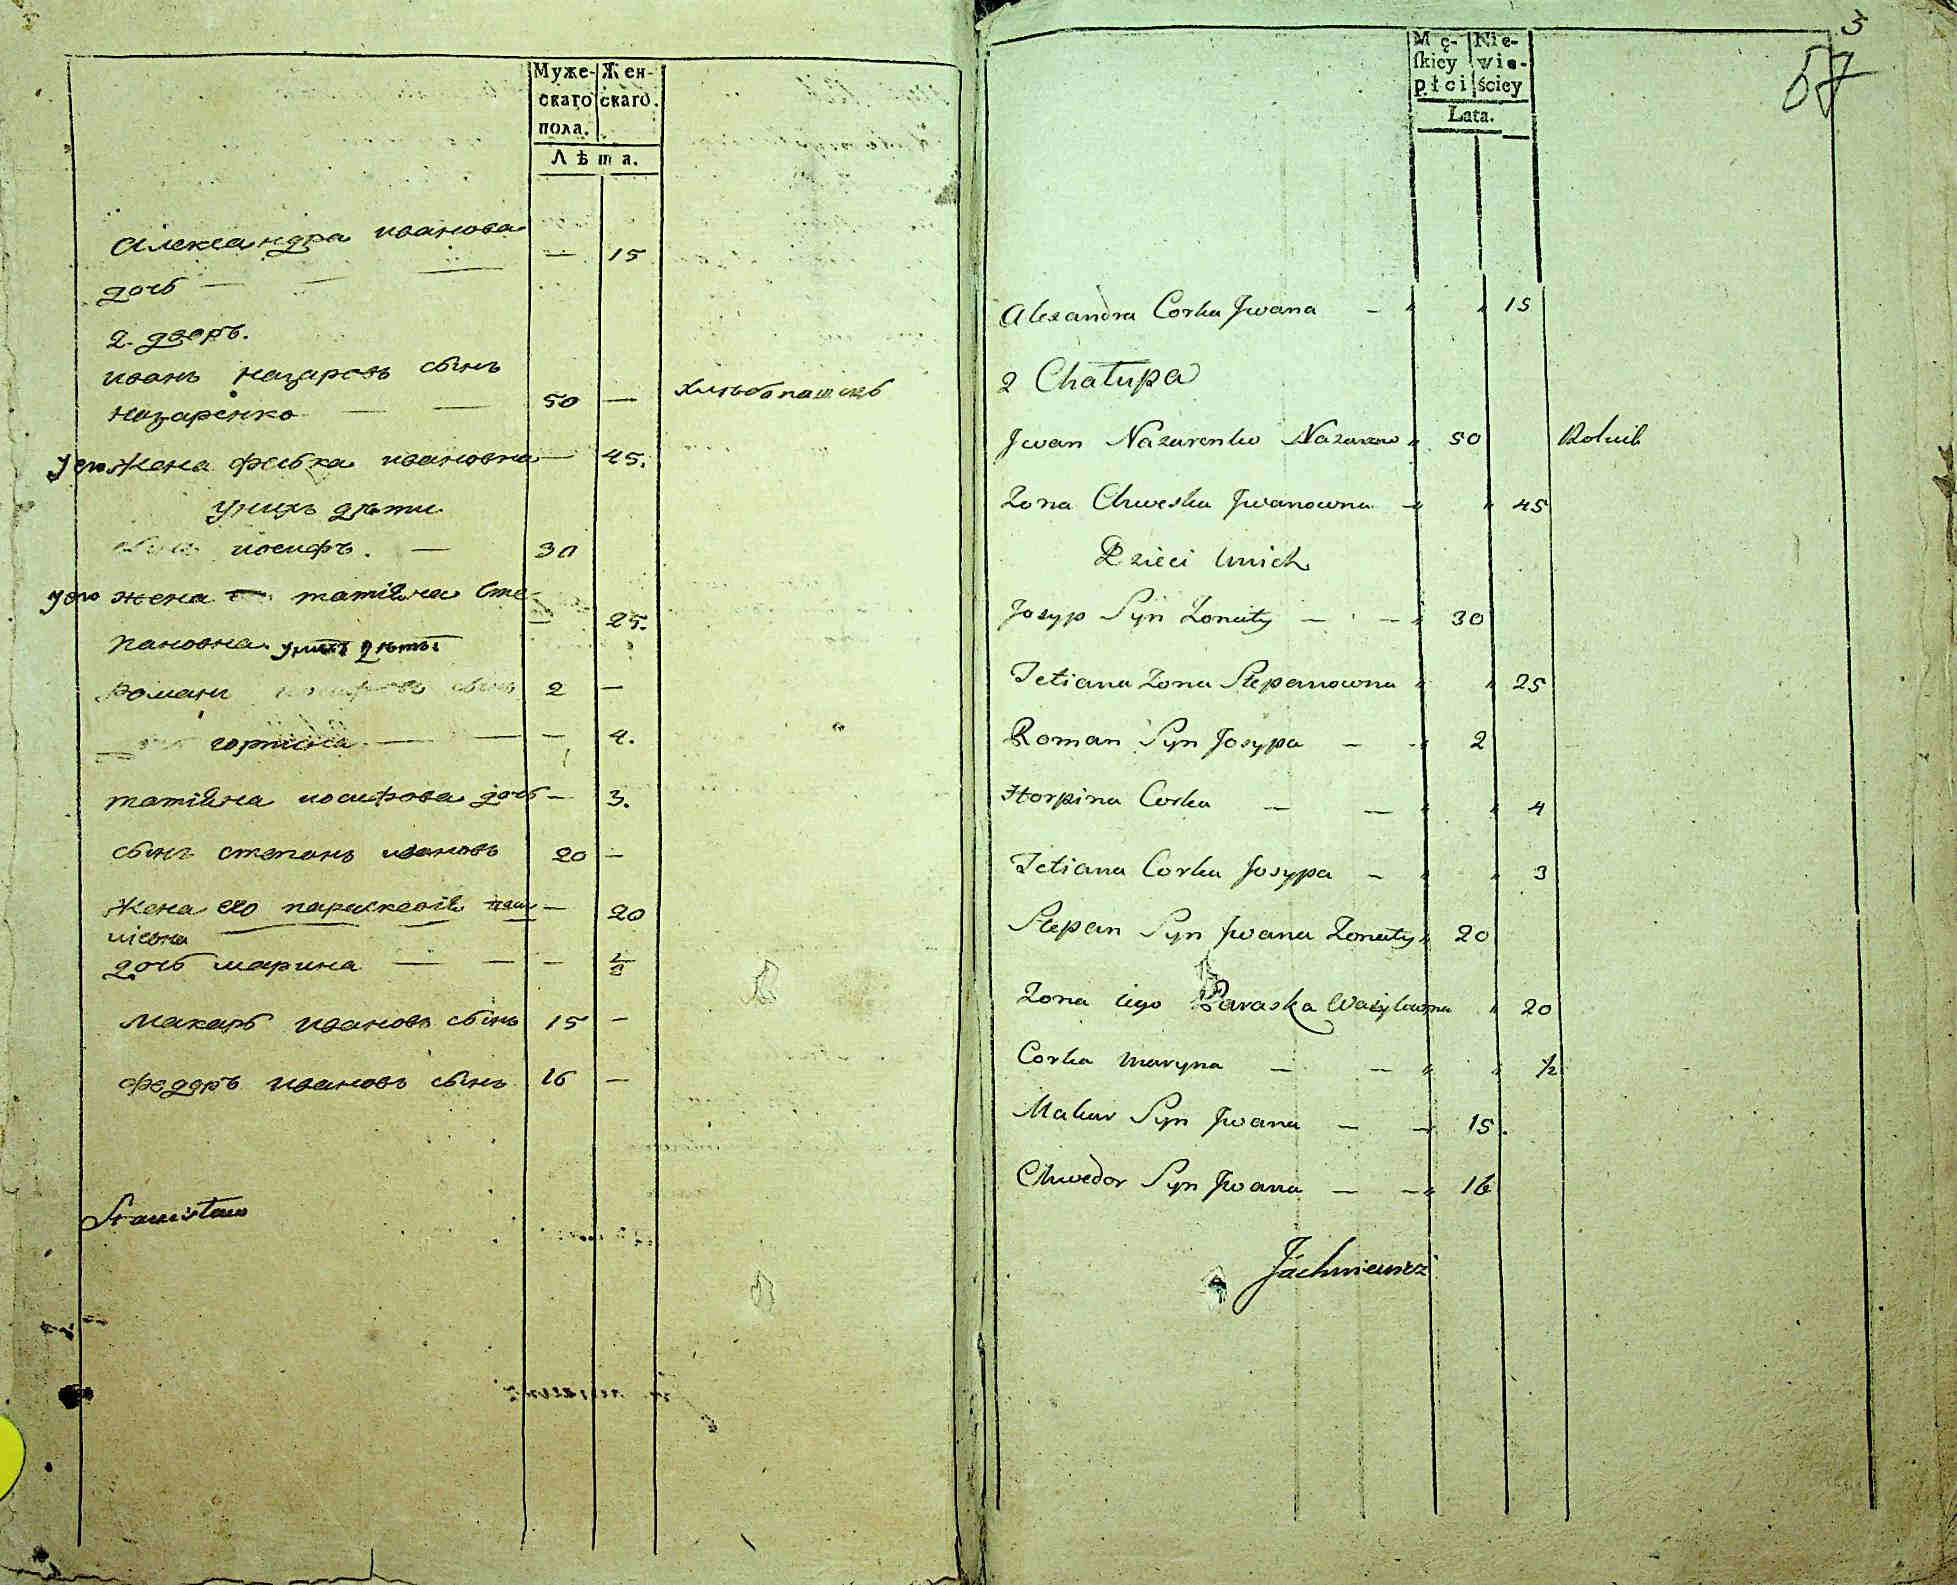 Муже-
скаго
пола.
Жен-
скаго.
Лѣта.
Александра иванова — 15
дочь — — —
2. дворъ.
иванъ назаровъ сынъ
назаренко — — 50 — хлѣбопашецъ
уего жена февка ивановна — 45.
унихъ дѣти
сынъ иосифъ. — 30
уего жена татіяна сте-
пановна. унихъ дѣты. 25.
романъ иосифовъ сынъ 2 —
горпина — — — 4.
татіяна иосифова дочь — 3.
сынъ степанъ ивановъ 20 —
жена его параскевія — 20
дочь марина — — — ½
Макаръ ивановъ сынъ 15 —
феодоръ ивановъ сынъ 16 —
Stanisław
3
57
Mę-
skiey
płci
Nie-
wie-
ściey
Lata.
Alexandra Corka Jwana — " " 15
2 Chałupa
Jwan Nazarenko Nazarow " 50 Rolnik
Zona Chweska Jwanowna — " " 45
Dzieci Unich
Josyp Syn Zonaty — — " 30
Tetiana Zona Stepanowna " " 25
Roman Syn Josypa — — " 2
Horpina Corka — — " " 4
Tetiana Corka Josypa — " " 3
Stepan Syn Jwana Zonaty " 20
Zona iego Paraska Wasylowna " 20
Corka Maryna — — " " ½
Makar Syn Jwana — — " 15.
Chwedor Syn Jwana — — " 16
Jachniewicz